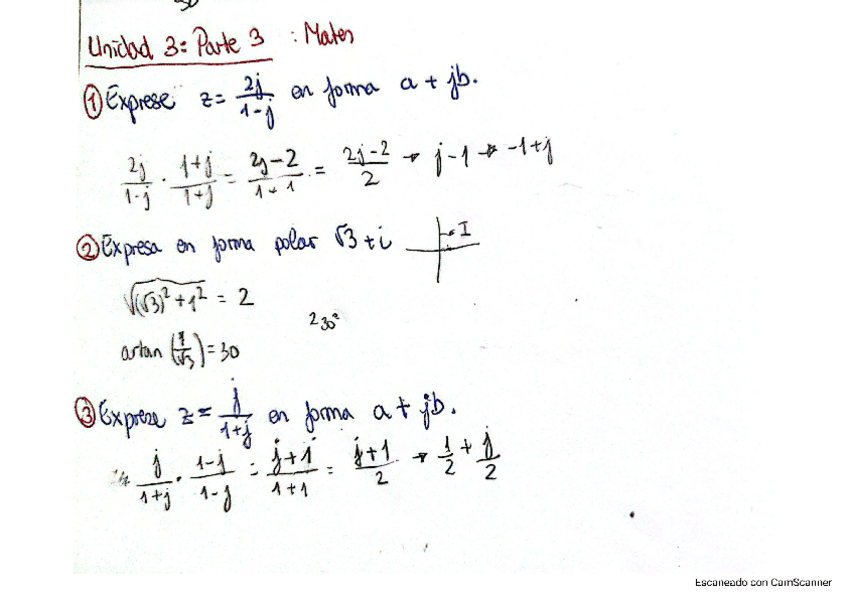 Unidad 3: Parte 3 : Mates
① Exprese z = 2j/1-j en forma a + jb.
2j/1-j · 1+j/1+j = 2j-2/1+1 = 2j-2/2 → j-1 → -1+j
② Expresa en forma polar √3 + i I
√(√3)²+1² = 2
2 30°
artan (1/√3) = 30
③ Exprese z = j/1+j en forma a + jb.
j/1+j · 1-j/1-j = j+1/1+1 = j+1/2 → 1/2 + j/2
Escaneado con CamScanner